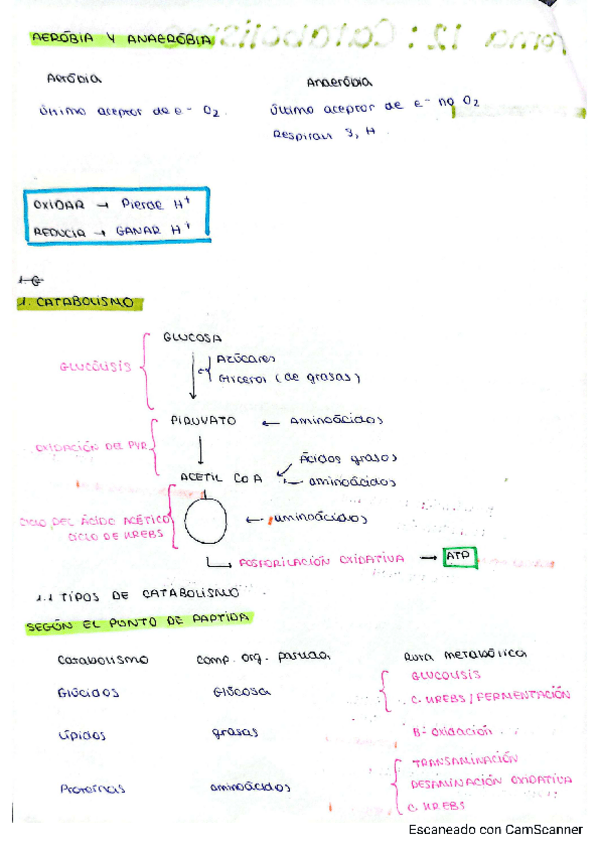 Tema 12: Catabolismo
AERÓBIA Y ANAERÓBIA
Aeróbia
Anaeróbia
último aceptor de e- O2.
último aceptor de e- no O2
Respiran S, H
OXIDAR → Pierde H+
REDUCIR → GANAR H+
1. CATABOLISMO
GLUCOSA
GLUCÓLISIS
Azúcares
Glicerol (de grasas)
PIRUVATO ← Aminoácidos
OXIDACIÓN DEL PVR
Ácidos grasos
ACETIL COA
aminoácidos
CICLO DEL ÁCIDO ACÉTICO
CICLO DE KREBS
← aminoácidos
FOSFORILACIÓN OXIDATIVA → ATP
1.1 TIPOS DE CATABOLISMO
SEGÚN EL PUNTO DE PARTIDA
Catabolismo
Comp. org. partida
Ruta metabólica
Glúcidos
Glúcosa
GLUCOLISIS
C. KREBS / FERMENTACIÓN
Lípidos
grasas
B- Oxidación
Proteínas
aminoácidos
TRANSAMINACIÓN
DESAMINACIÓN OXIDATIVA
C. KREBS
Escaneado con CamScanner